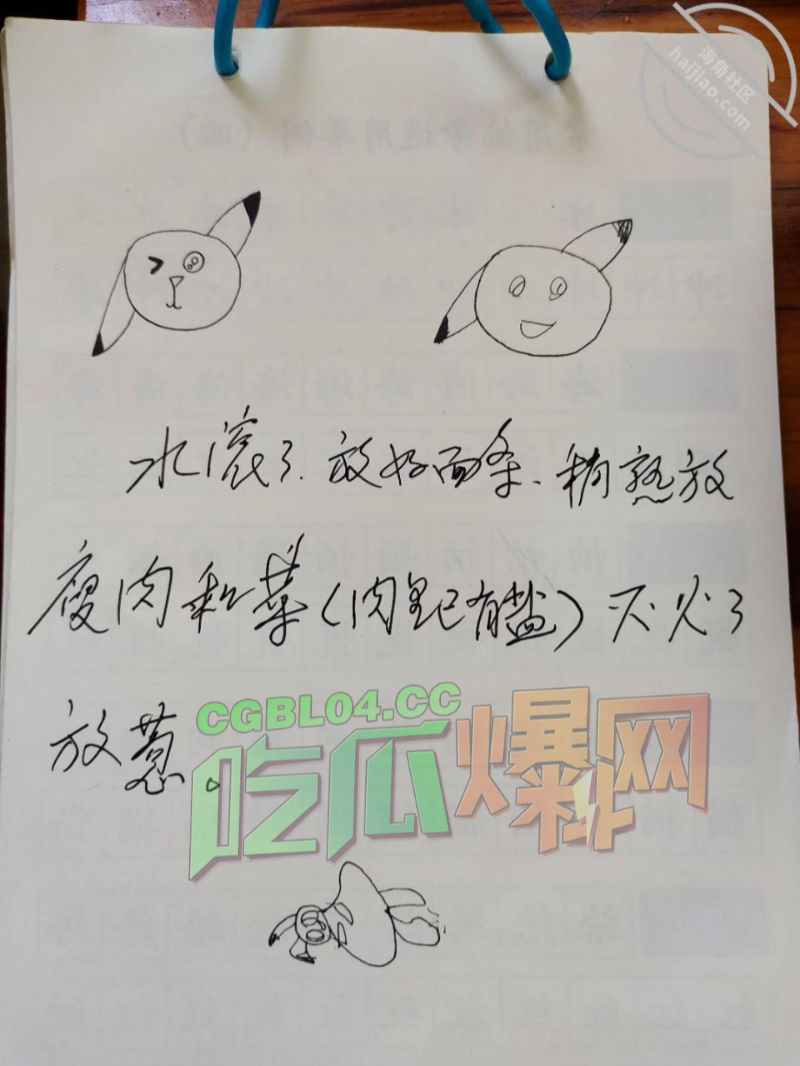 海角社区
haijiao.com
水滚了.放好面条、稍熟放
瘦肉和菜(肉里已有盐)灭火了
放葱。
CGBL04.CC
吃瓜爆网